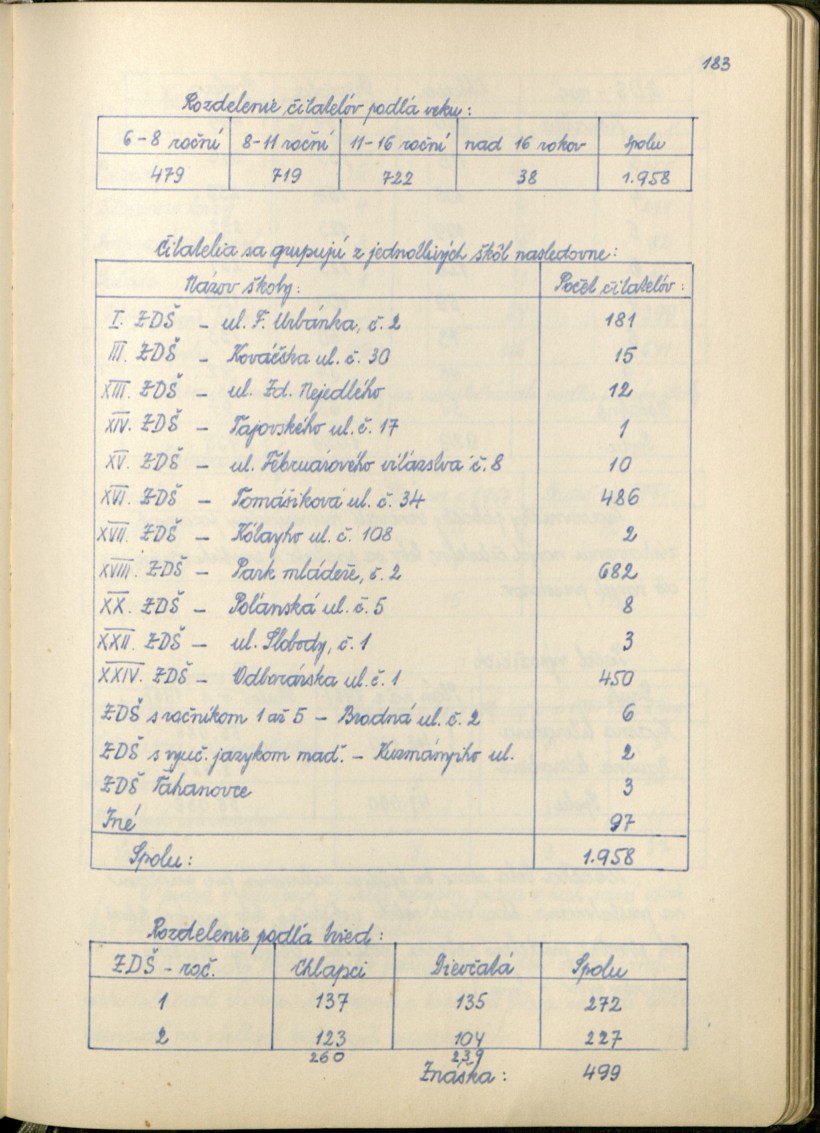 183
Rozdelenie čitatelóv podľa veku:
6-8 roční 8-11 roční 11-16 roční nad 16 rokov Spolu
479 719 722 38 1.958
Čitatelia sa grupujú z jednotlivých škôl nasledovne:
Názov školy: Počet čitatelóv:
I. ZDŠ - ul. F. Urbánka, č. 2 181
III. ZDŠ - Kováčska ul. č. 30 15
XIII. ZDŠ - ul. Zd. Nejedlého 12
XIV. ZDŠ - Tajovského ul. č. 17 1
XV. ZDŠ - ul. Februárového víťazstva č. 8 10
XVI. ZDŠ - Tomášiková ul. č. 34 486
XVII. ZDŠ - ul. č. 108 2
XVIII. ZDŠ - Park mládeže, č. 2 682
XX. ZDŠ - Polánská ul. č. 5 8
XXII. ZDŠ - ul. Slobody, č. 1 3
XXIV. ZDŠ - Odborárska ul. č. 1 450
ZDŠ s ročníkom 1 až 5 - Brodná ul. č. 2 6
ZDŠ s vyuč. jazykom maď. - Kuzmányiho ul. 2
ZDŠ Ťahanovce 3
Iné 97
Spolu: 1.958
Rozdelenie podľa tried:
ZDŠ - roč. Chlapci Dievčatá Spolu
1 137 135 272
2 123 104 227
260 239
Znáška: 499